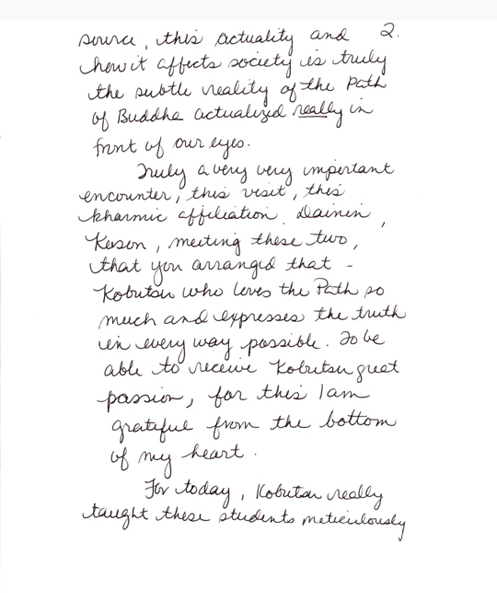 source, this actuality and 2.
how it affects society is truly
the subtle reality of the Path
of Buddha actualized really in
front of our eyes.
Truly a very very important
encounter, this visit, this
kharmic affiliation. Dainin,
Keson, meeting these two,
that you arranged that -
Kobutsu who loves the Path so
much and expresses the truth
in every way possible. To be
able to receive Kobutsu great
passion, for this I am
grateful from the bottom
of my heart.
For today, Kobutsu really
taught these students meticulously